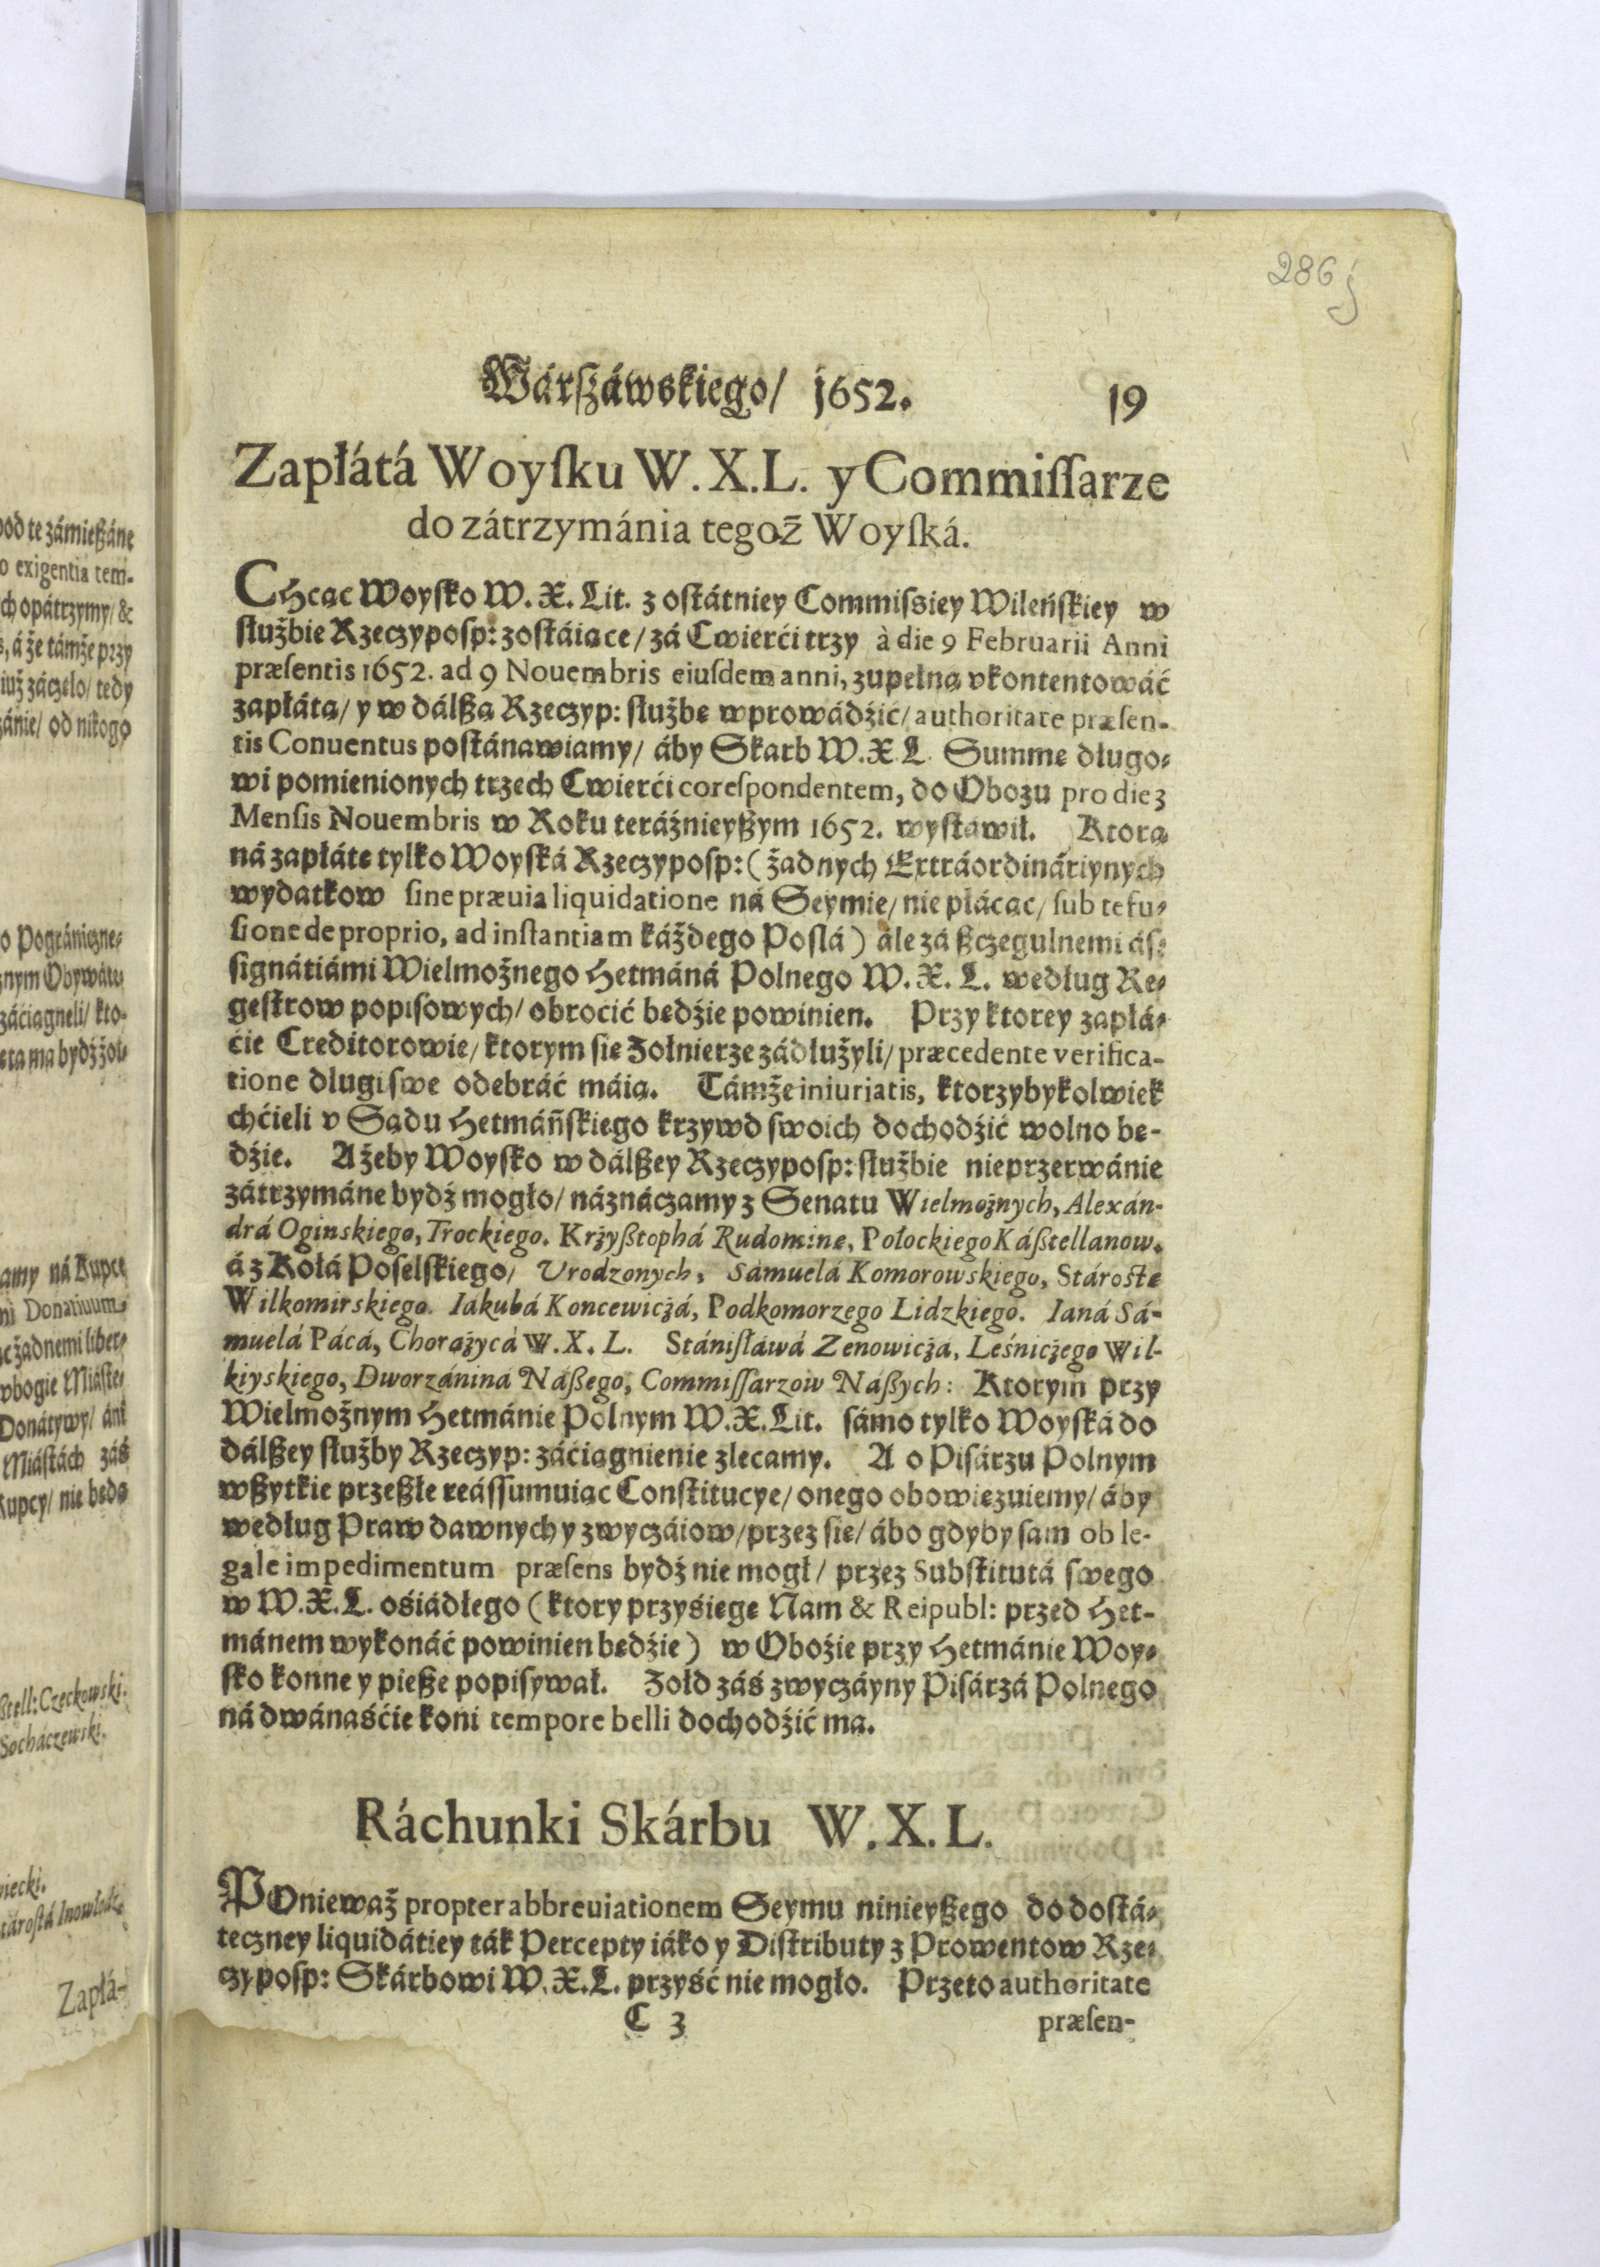 286j
Wárſzáwskiego/ 1652. 19
Zapłátá Woyſku W.X.L. y Commiſſarze
do zátrzymánia tegoż Woyſká.
CHcąc Woysko W. X. Lit. z ostátniey Commiſsiey Wileńskiey w
służbie Rzeczyposp: zostáiące/ zá Cwierći trzy à die 9 Februarii Anni
præſentis 1652. ad 9 Nouembris eiuſdem anni, zupełną vkontentowáć
zapłátą/ y w dálßą Rzeczyp: służbę wprowádźić/ authoritate præſen-
tis Conuentus postánawiamy/ áby Skarb W.X.L. Summę długo-
wi pomienionych trzech Cwierći coreſpondentem, do Obozu pro die 3
Menſis Nouembris w Roku teráźnieyßym 1652. wystawił. Ktorą
ná zapłátę tylko Woyská Rzeczyposp: (żadnych Extráordináriynych
wydatkow ſine præuia liquidatione ná Seymie/ nie płácąc/ ſub refu-
ſione de proprio, ad inſtantiam káżdego Poslá) ále zá ßczegulnemi áſ-
signátiámi Wielmożnego Hetmáná Polnego W. X. L. według Re-
gestrow popisowych/ obroćić będźie powinien. Przy ktorey zapłá-
ćie Creditorowie/ ktorym się Zołnierze zádłużyli/ præcedente verifica-
tione długi swe odebráć máią. Támże iniuriatis, ktorzybykolwiek
chćieli v Sądu Hetmáńskiego krzywd swoich dochodźić wolno bę-
dźie. Ażeby Woysko w dálßey Rzeczyposp: służbie nieprzerwánie
zátrzymáne bydź mogło/ náznáczamy z Senatu Wielmożnych, Alexán-
drá Oginskiego, Trockiego. Krżyßtophá Rudominę, Połockiego Káßtellanow.
á z Kołá Poselskiego/ Vrodzonych, Sámuelá Komorowskiego, Stárostę
Wilkomirskiego. Iakubá Koncewiczá, Podkomorzego Lidzkiego. Ianá Sá-
muelá Pácá, Chorążycá W.X.L. Stániſłáwá Zenowiczá, Leśniczego Wil-
kiyskiego, Dworzániná Náßego, Commiſſarzow Náßych: Ktorym przy
Wielmożnym Hetmánie Polnym W.X.Lit. sámo tylko Woyská do
dálßey służby Rzeczyp: záćiągnienie zlecamy. A o Pisárzu Polnym
wßytkie przeßłe reáſſumuiąc Constitucye/ onego obowięzuiemy/ áby
według Praw dawnych y zwyczáiow/ przez się/ ábo gdyby sam ob le-
gale impedimentum præſens bydź nie mogł/ przez Substitutá swego
w W.X.L. ośiádłego (ktory przyśięgę Nam & Reipubl: przed Het-
mánem wykonáć powinien będźie) w Oboźie przy Hetmánie Woy-
sko konne y pieße popisywał. Zołd záś zwyczáyny Pisárzá Polnego
ná dwánaśćie koni tempore belli dochodźić ma.
Ráchunki Skárbu W.X.L.
POnieważ propter abbreuiationem Seymu ninieyßego do dostá-
teczney liquidátiey ták Percepty iáko y Distributy z Prowentow Rze-
czyposp: Skárbowi W.X.L. przyść nie mogło. Przeto authoritate
C 3 præſen-
pod te zámießáne
o exigentia tem-
ch opátrzymy/ &
s, á że támże przy
iuż záczęło/ tedy
zánie/ od nikogo
o Pográniczne-
znym Obywáte-
záćiągnęli/ kto-
eta ma bydź żoł-
amy ná Kupce
ni Donatiuum
ąc żadnemi liber-
vbogie Miáste-
Donátywy/ áni
Miástách záś
Kupcy/ nie będą
ßtell: Czeckowski.
Socháczewski.
wiecki.
tárostá Inowłodz.
Zapłá-